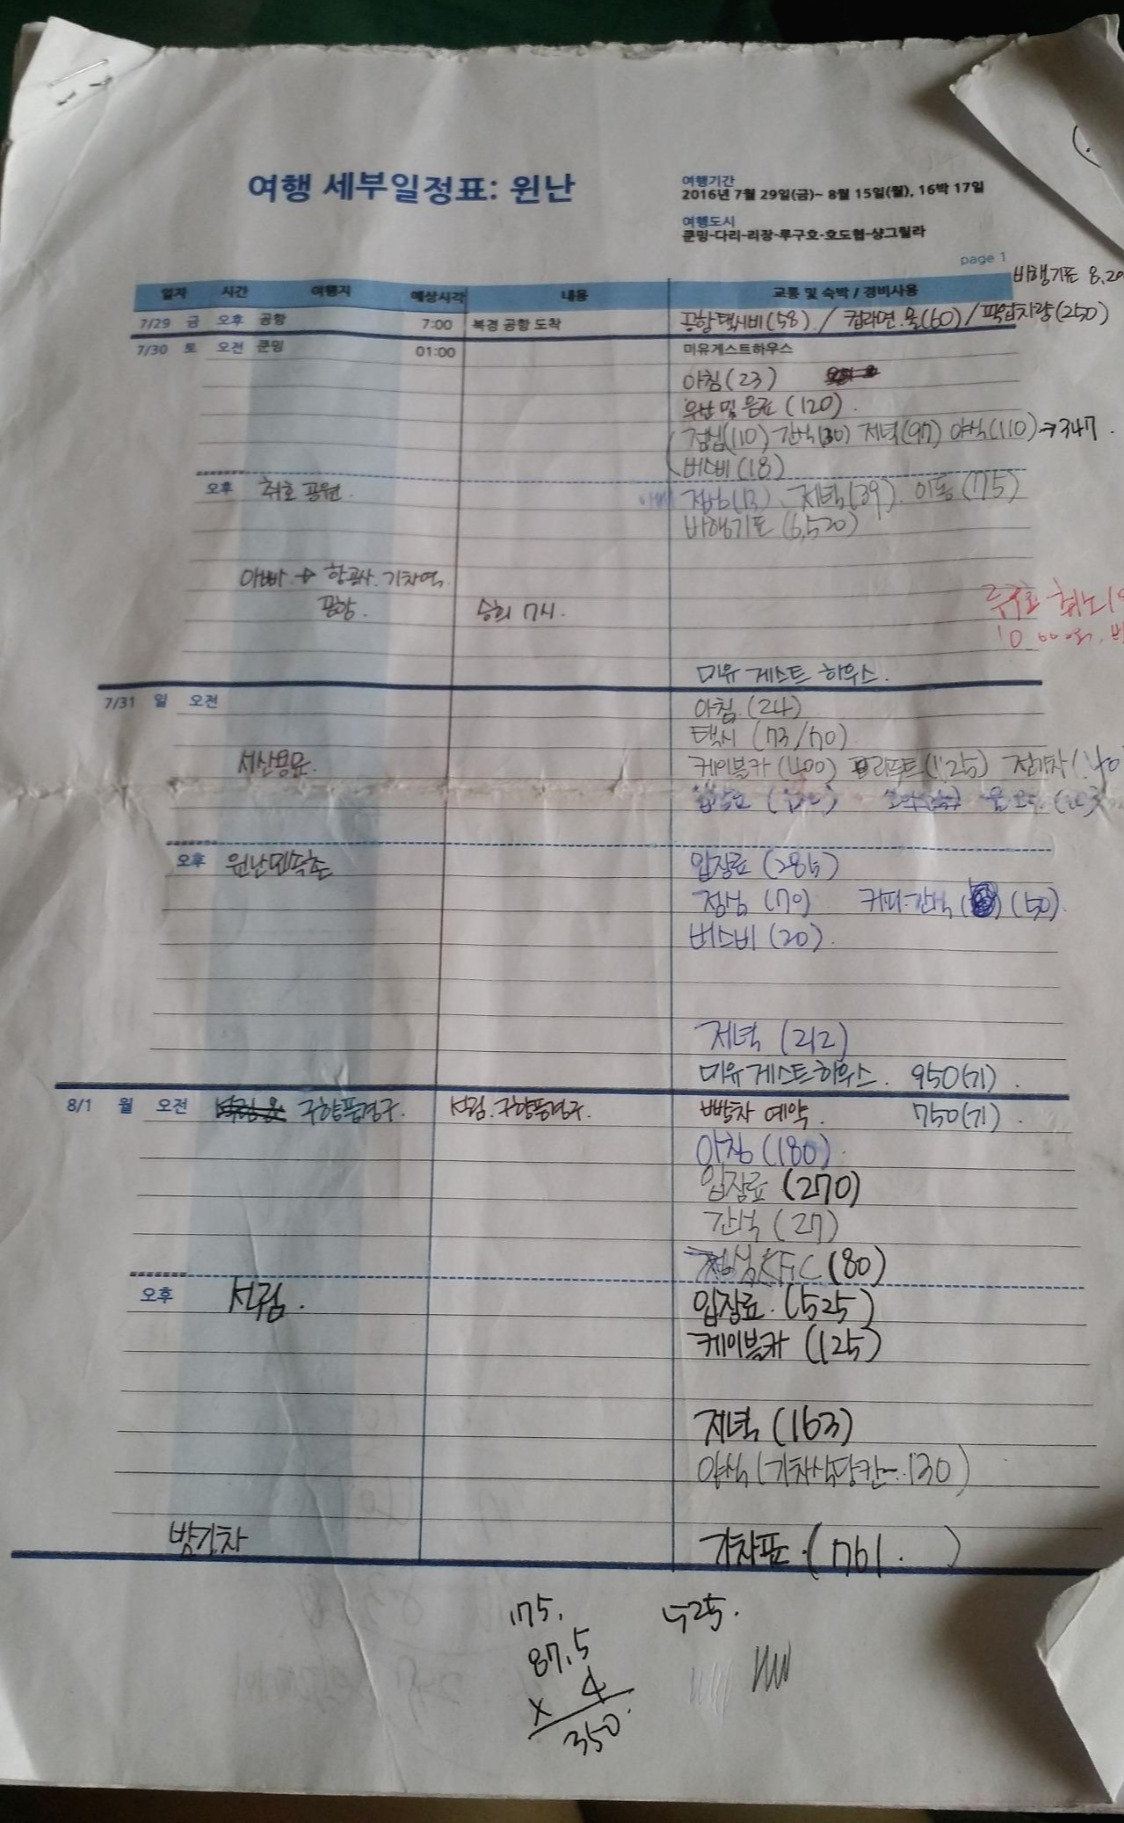 여행 세부일정표: 윈난
여행기간
2016년 7월 29일(금)~ 8월 15일(월), 16박 17일
여행도시
쿤밍-다리-리장-루구호-호도협-샹그릴라
page 1
비행기표 8,20
일자 시간 여행지 예상시각 내용 교통 및 숙박 / 경비사용
7/29 금 오후 공항 7:00 북경 공항 도착 공항택시비(58) / 컵라면.물(60) / 픽업차량(250)
7/30 토 오전 쿤밍 01:00 미유게스트하우스
아침(23)
우산 및 음료 (120).
점심(110) 간식(30) 저녁(97) 야식(110)→347.
버스비(18)
오후 취호 공원. 점심(13), 저녁(39), 이동(175)
비행기표 (6,520)
아빠 → 항공사. 기차역.
공항. 승희 7시.
미유 게스트 하우스.
7/31 일 오전 아침.(24)
택시 (73/70)
서산용문. 케이블카 (400) 리프트(125) 전기차(40
입장료
오후 윈난민속촌 입장료 (285)
점심 (70) 커피.간식 (50).
버스비(20).
저녁 (212)
미유게스트하우스. 950(기).
8/1 월 오전 구향풍경구. 석림.구향풍경구. 빵차 예약. 750(기).
아침(180).
입장료 (270)
간식 (27)
점심KFC (80)
오후 석림. 입장료. (525)
케이블카 (125)
저녁 (163)
야식 (기차식당칸-130)
밤기차 기차표.(761. )
175. 525.
87.5
x 4
350.